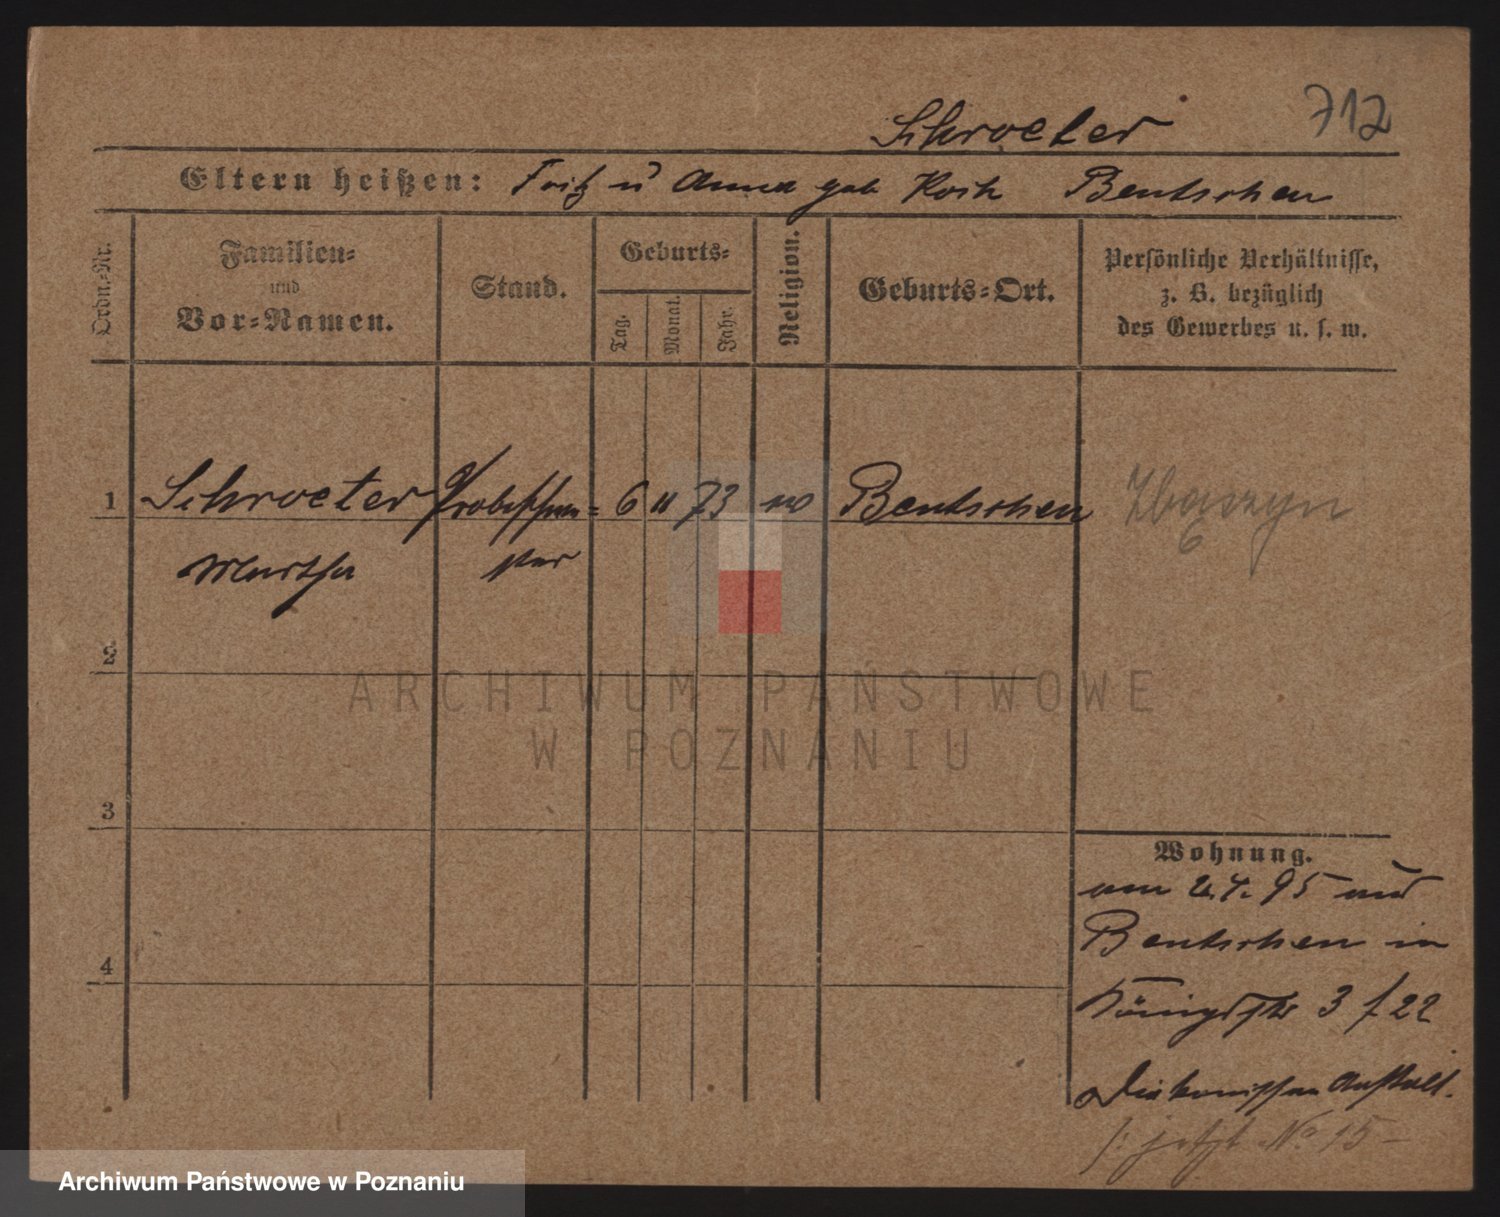 712
Schroeter
Eltern heißen: Fritz u Anna geb Koch Bentschen
Ordn.-Nr.
Familien-
und
Vor-Namen.
Stand.
Geburts-
Tag.
Monat.
Jahr.
Religion.
Geburts-Ort.
Persönliche Verhältnisse,
z. B. bezüglich
des Gewerbes u. s. w.
1 Schroeter Probeschwe= 6 11 73 Bentschen Zbaszyn
Martha ster 6
2
3
4
Wohnung.
am 2.4.95 aus
Bentschen in
Königstr 3 f 22
Diakonissen Anstalt.
/: jetzt No 15
ARCHIWUM PAŃSTWOWE
W POZNANIU
Archiwum Państwowe w Poznaniu